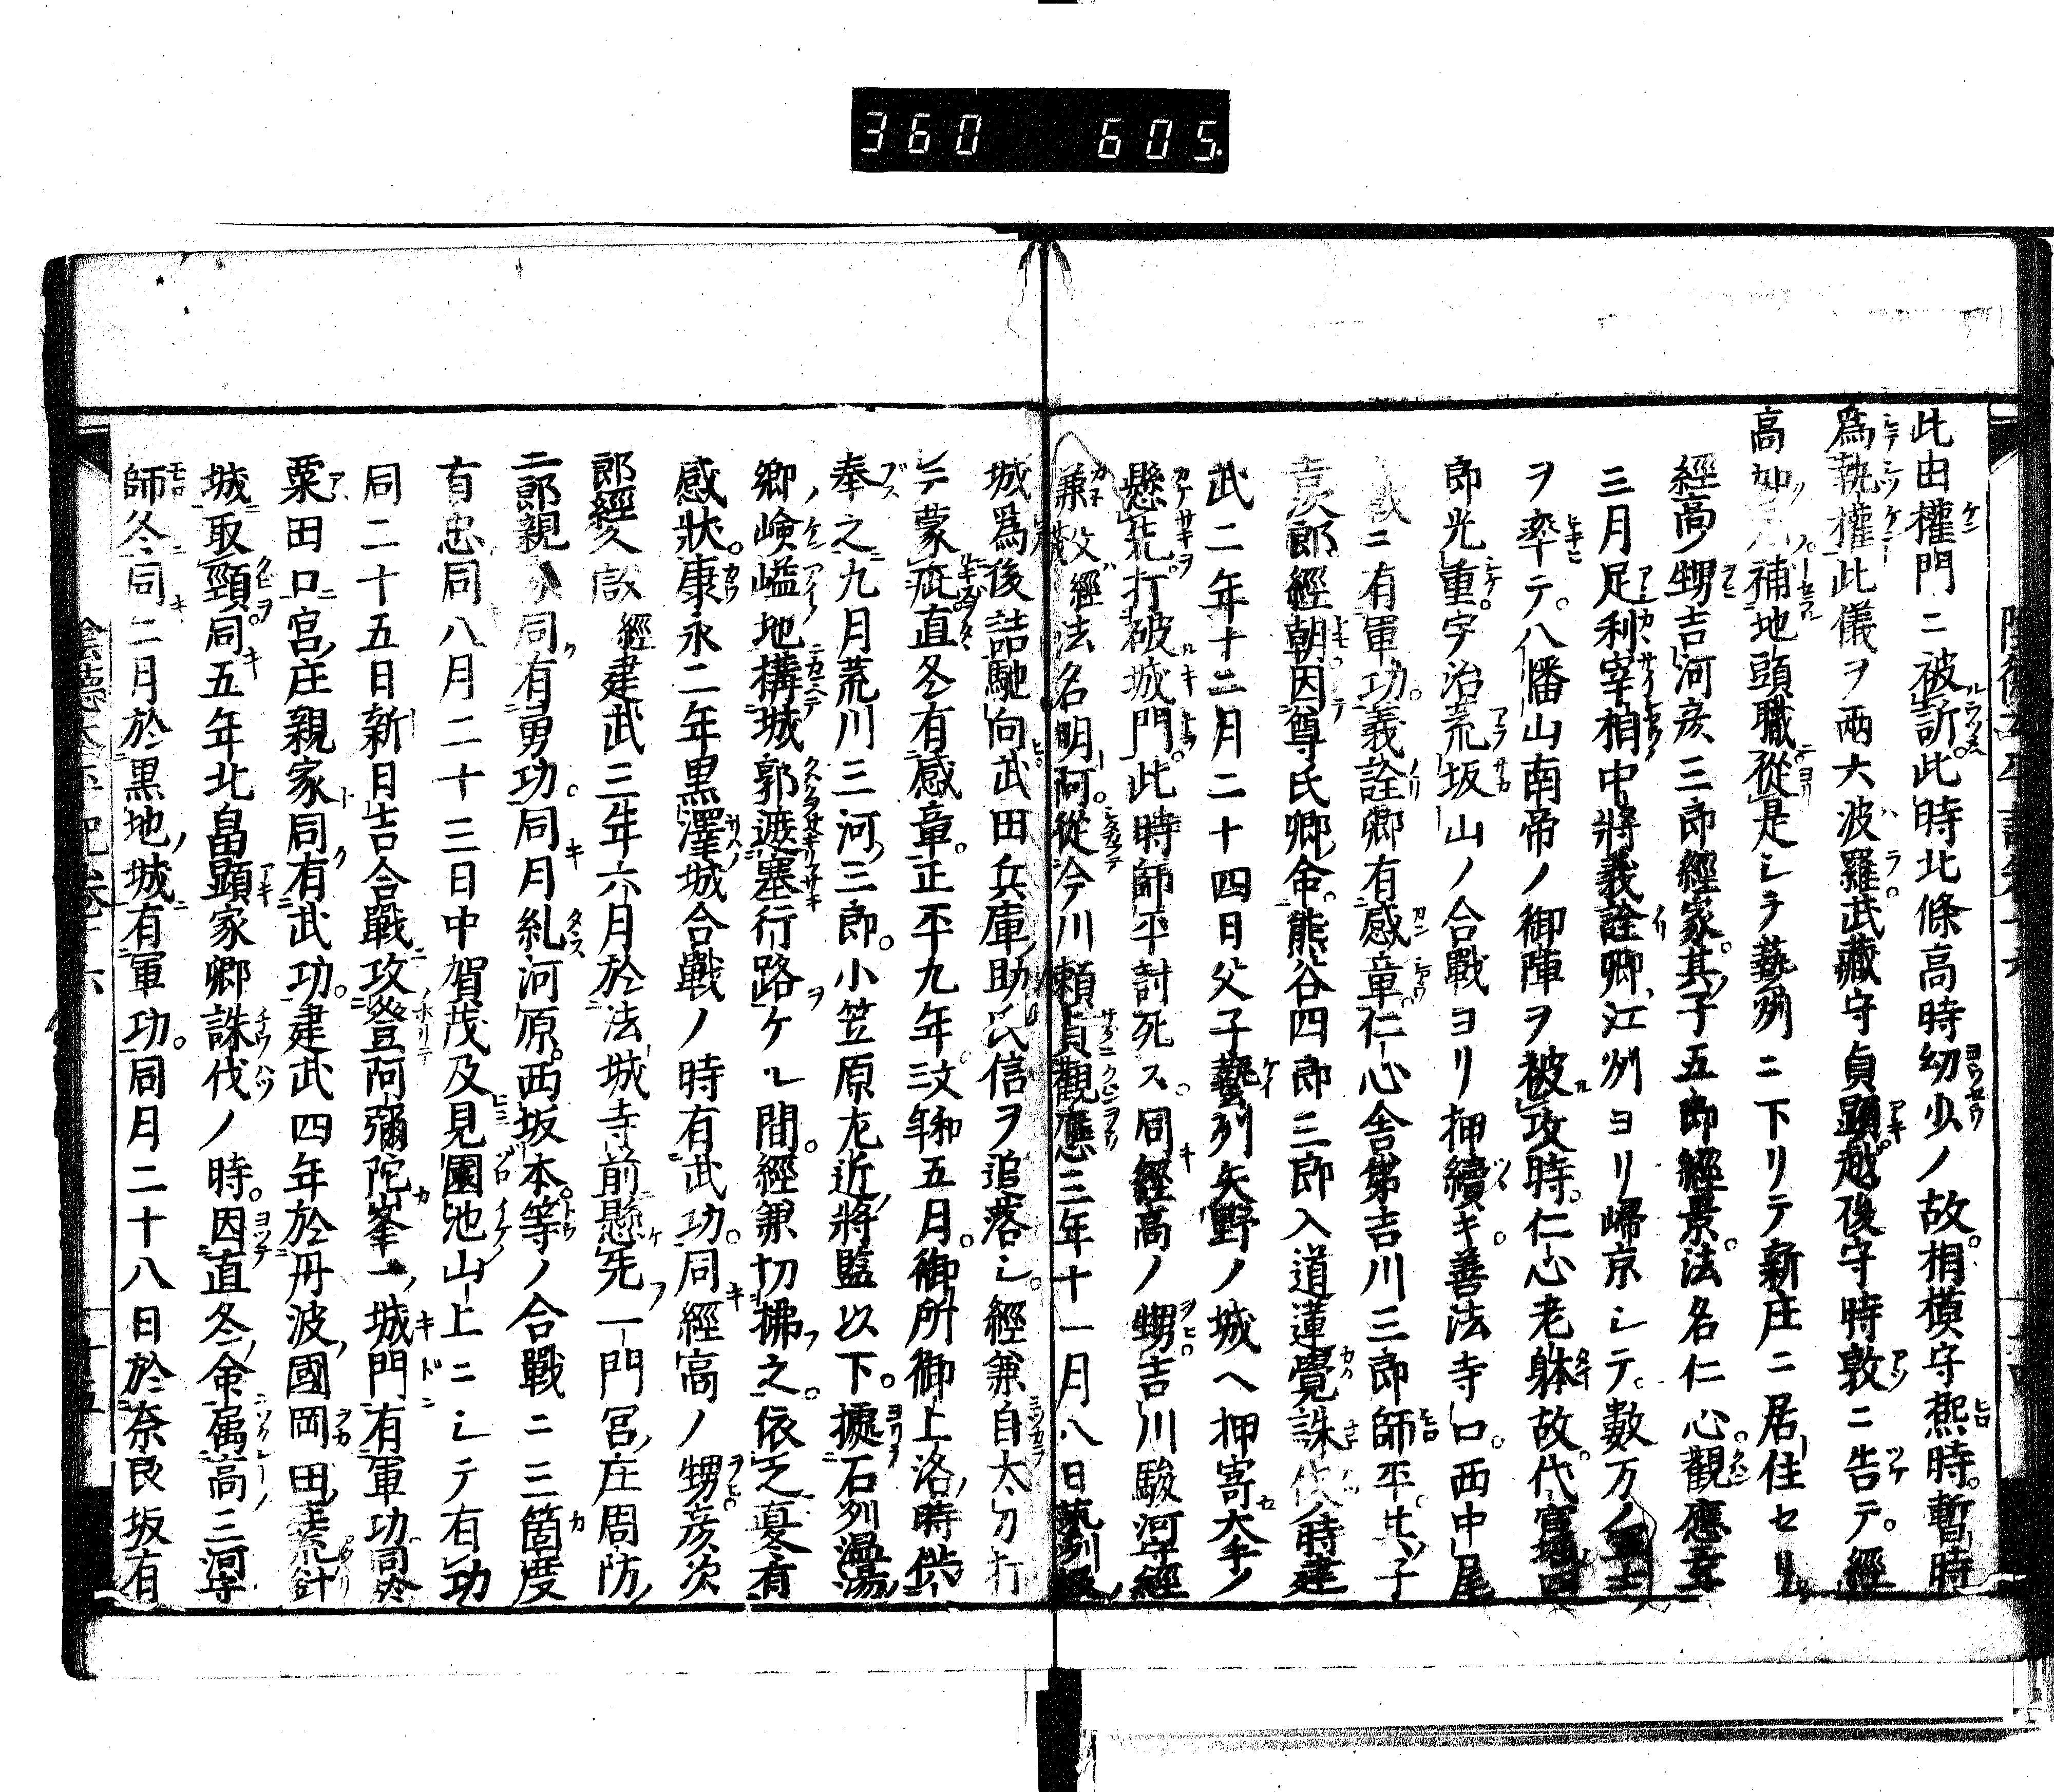 360 605.
此由權門ニ被訴此時北條高時幼少ノ故相模守熙時暫時
爲執權此儀ヲ兩六波羅武藏守貞顯越後守時敦ニ告テ經
高補地頭職從是シテ藝州ニ下リテ新庄ニ居住セリ
經高ノ甥吉河彦三郎經家其子五郎經景法名仁心觀應
三月足利宰相中將義詮卿江州ヨリ歸京シテ數万ノ
ヲ率テ八幡山南帝ノ御陣ヲ被攻時仁心老躰故代官
郎光重宇治荒坂山ノ合戰ヨリ押續キ善法寺口西中尾
ニ有軍功義詮卿有感章仁心舎弟吉川三郎師平其子
郎經朝因尊氏卿命熊谷四郎三郎入道蓮覺誅伐ノ時建
武二年十二月二十四日父子藝州矢野ノ城ヘ押寄大手ノ
懸先打破城門此時師平討死ス同經高ノ甥吉川駿河守經
兼經法名明阿從今川頼貞觀應三年十一月八日藝州
城爲後詰馳向武田兵庫助氏信ヲ追落シ經兼自太刀打
シテ蒙疵直冬有感章正平九年文和三年五月御所御上洛時供
奉之九月荒川三河三郎小笠原左近將監以下據石州温湯
郷ノ嶮嶮地構城郭遮塞行路ケル間經兼切拂之依之直冬有
感狀康永二年黒澤城合戰ノ時有武功同經高ノ甥彦次
郎經久 經建武三年六月於法城寺前懸先一門宮庄周防
二郎親同有勇功同月糺河原西坂本等ノ合戰ニ三箇度
有忠同八月二十三日中賀茂及見園池山上ニシテ有功
同二十五日新日吉合戰攻登阿彌陀峯一城門有軍功同於
粟田口宮庄親家同有武功建武四年於丹波國岡田
城取頸同五年北畠顯家卿誅伐ノ時因直冬命属高三河守
師冬同二月於黒地城有軍功同月二十八日於奈良坂有